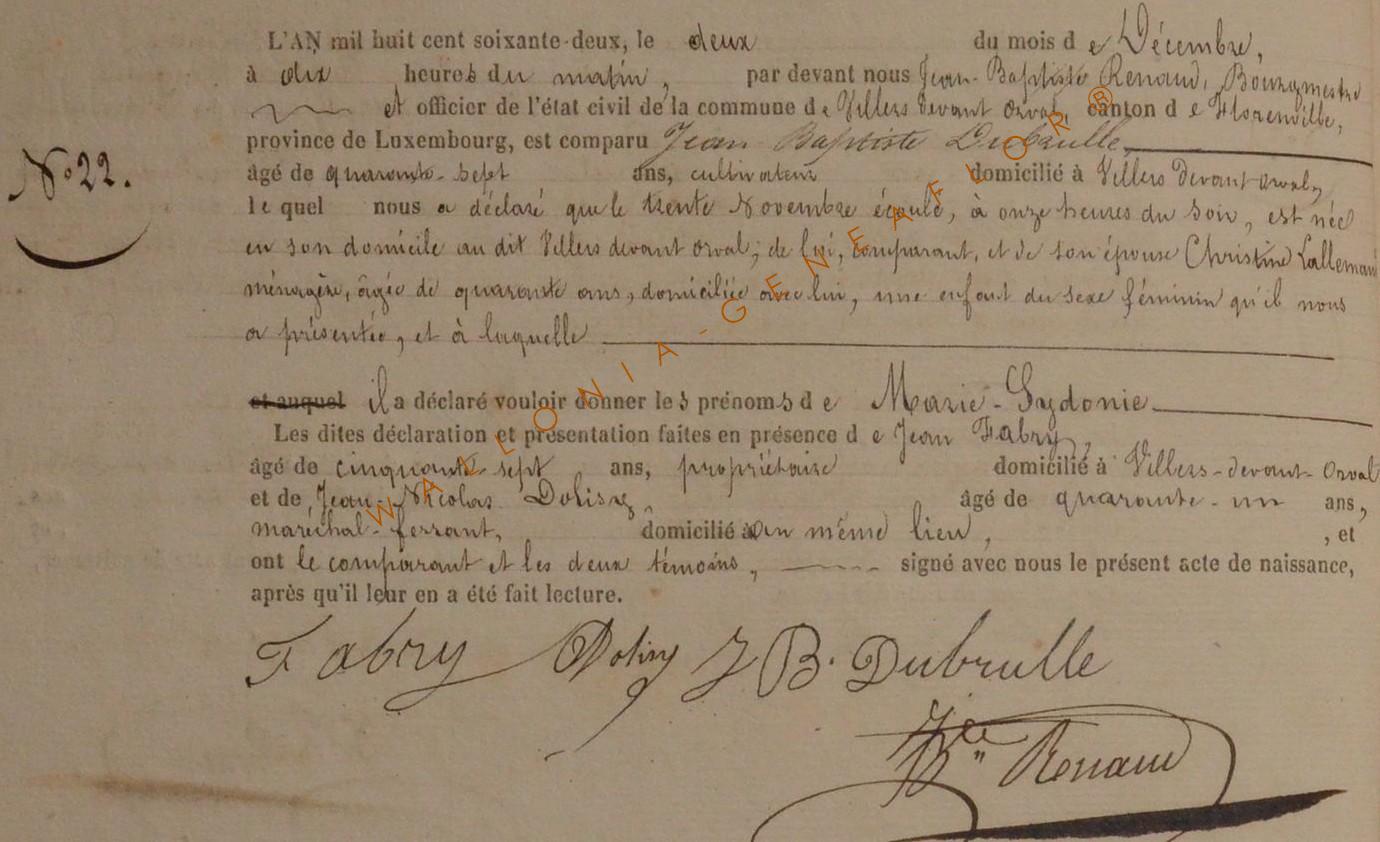 L'AN mil huit cent soixante-deux, le deux du mois d e Décembre,
à dix heures du matin, par devant nous Jean-Baptiste Renaud, Bourgmestre
et officier de l'état civil de la commune d e Villers devant Orval, canton d e Florenville,
province de Luxembourg, est comparu Jean Baptiste Dubrulle,
N° 22.
âgé de quarante-sept ans, cultivateur domicilié à Villers devant orval,
le quel nous a déclaré que le trente Novembre écoulé, à onze heures du soir, est née
en son domicile au dit Villers devant orval, de lui, comparant, et de son épouse Christine Lallemand
ménagère, âgée de quarante ans, domiciliée avec lui, une enfant du sexe féminin qu'il nous
a présentée, et à laquelle
et auquel il a déclaré vouloir donner le s prénom s d e Marie-Sydonie
Les dites déclaration et présentation faites en présence d e Jean Fabry,
âgé de cinquante-sept ans, propriétaire domicilié à Villers-devant-Orval
et de Jean-Nicolas Dolisy, âgé de quarante-un ans,
maréchal-ferrant, domicilié au même lieu, , et
ont le comparant et les deux témoins, signé avec nous le présent acte de naissance,
après qu'il leur en a été fait lecture.
Fabry Dolisy J B. Dubrulle
Renaud
WALLONIA-GENEAFLOR®